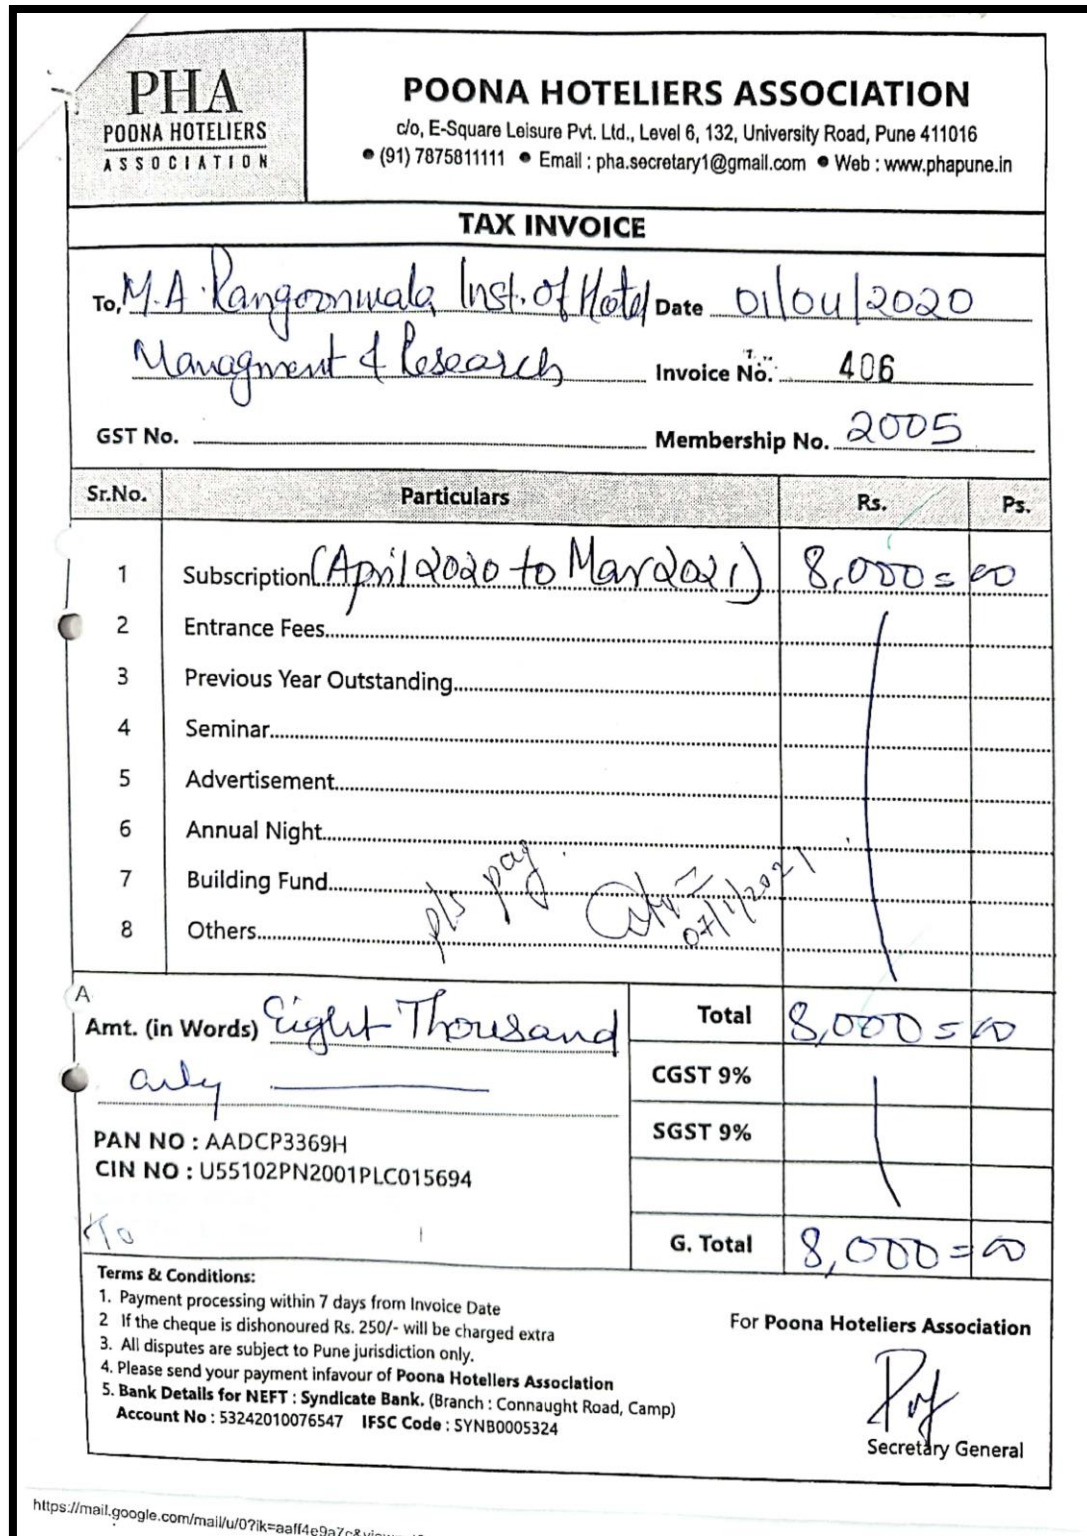 PHA
POONA HOTELIERS
ASSOCIATION
POONA HOTELIERS ASSOCIATION
c/o, E-Square Leisure Pvt. Ltd., Level 6, 132, University Road, Pune 411016
● (91) 7875811111 ● Email : pha.secretary1@gmail.com ● Web : www.phapune.in
TAX INVOICE
To, M.A. Rangoonwala Inst. of Hotel Date 01/04/2020
Managment & Research Invoice No. 406
GST No. Membership No. 2005
Sr.No. Particulars Rs. Ps.
1 Subscription (April 2020 to Mar 2021) 8,000 = 00
2 Entrance Fees
3 Previous Year Outstanding
4 Seminar
5 Advertisement
6 Annual Night
7 Building Fund
8 Others
pls pay
07/1/2021
A
Amt. (in Words) Eight Thousand Total 8,000 = 00
only CGST 9%
SGST 9%
PAN NO : AADCP3369H
CIN NO : U55102PN2001PLC015694
G. Total 8,000 = 00
Terms & Conditions:
1. Payment processing within 7 days from Invoice Date
2 If the cheque is dishonoured Rs. 250/- will be charged extra
3. All disputes are subject to Pune jurisdiction only.
4. Please send your payment infavour of Poona Hotellers Association
5. Bank Details for NEFT : Syndicate Bank. (Branch : Connaught Road, Camp)
Account No : 53242010076547 IFSC Code : SYNB0005324
For Poona Hoteliers Association
Secretary General